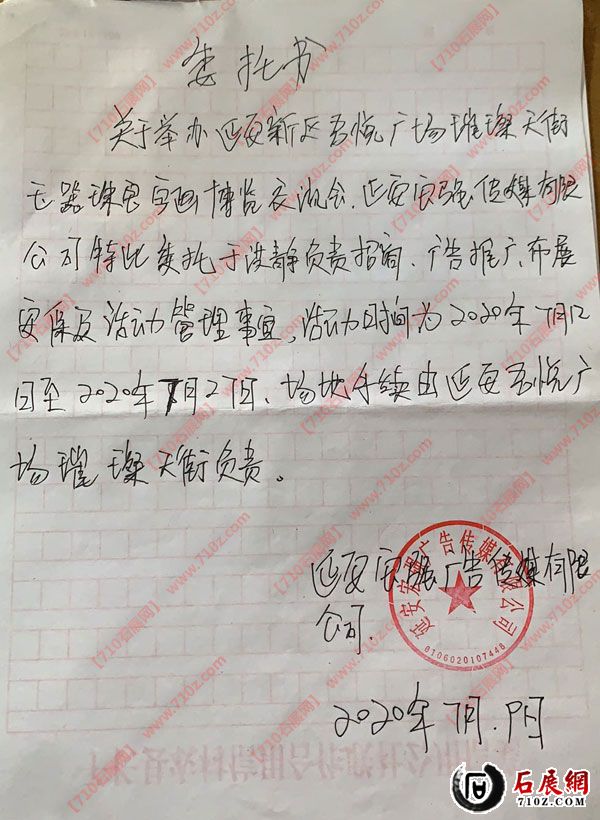 委托书
关于举办延安新区吾悦广场璀璨天街
玉器珠宝字画博览交流会.延安宏强传媒有限
公司特此委托于洪静负责招商、广告推广、布展
安保及活动管理事宜,活动时间为2020年7月12
日至2020年7月27日、场地手续由延安吾悦广
场璀璨天街负责。
延安宏强广告传媒有限
公司.
延安宏强广告传媒有限公司
6106020107446
2020年7月.
石展網
710Z.COM
【710石展网】 www.710z.com